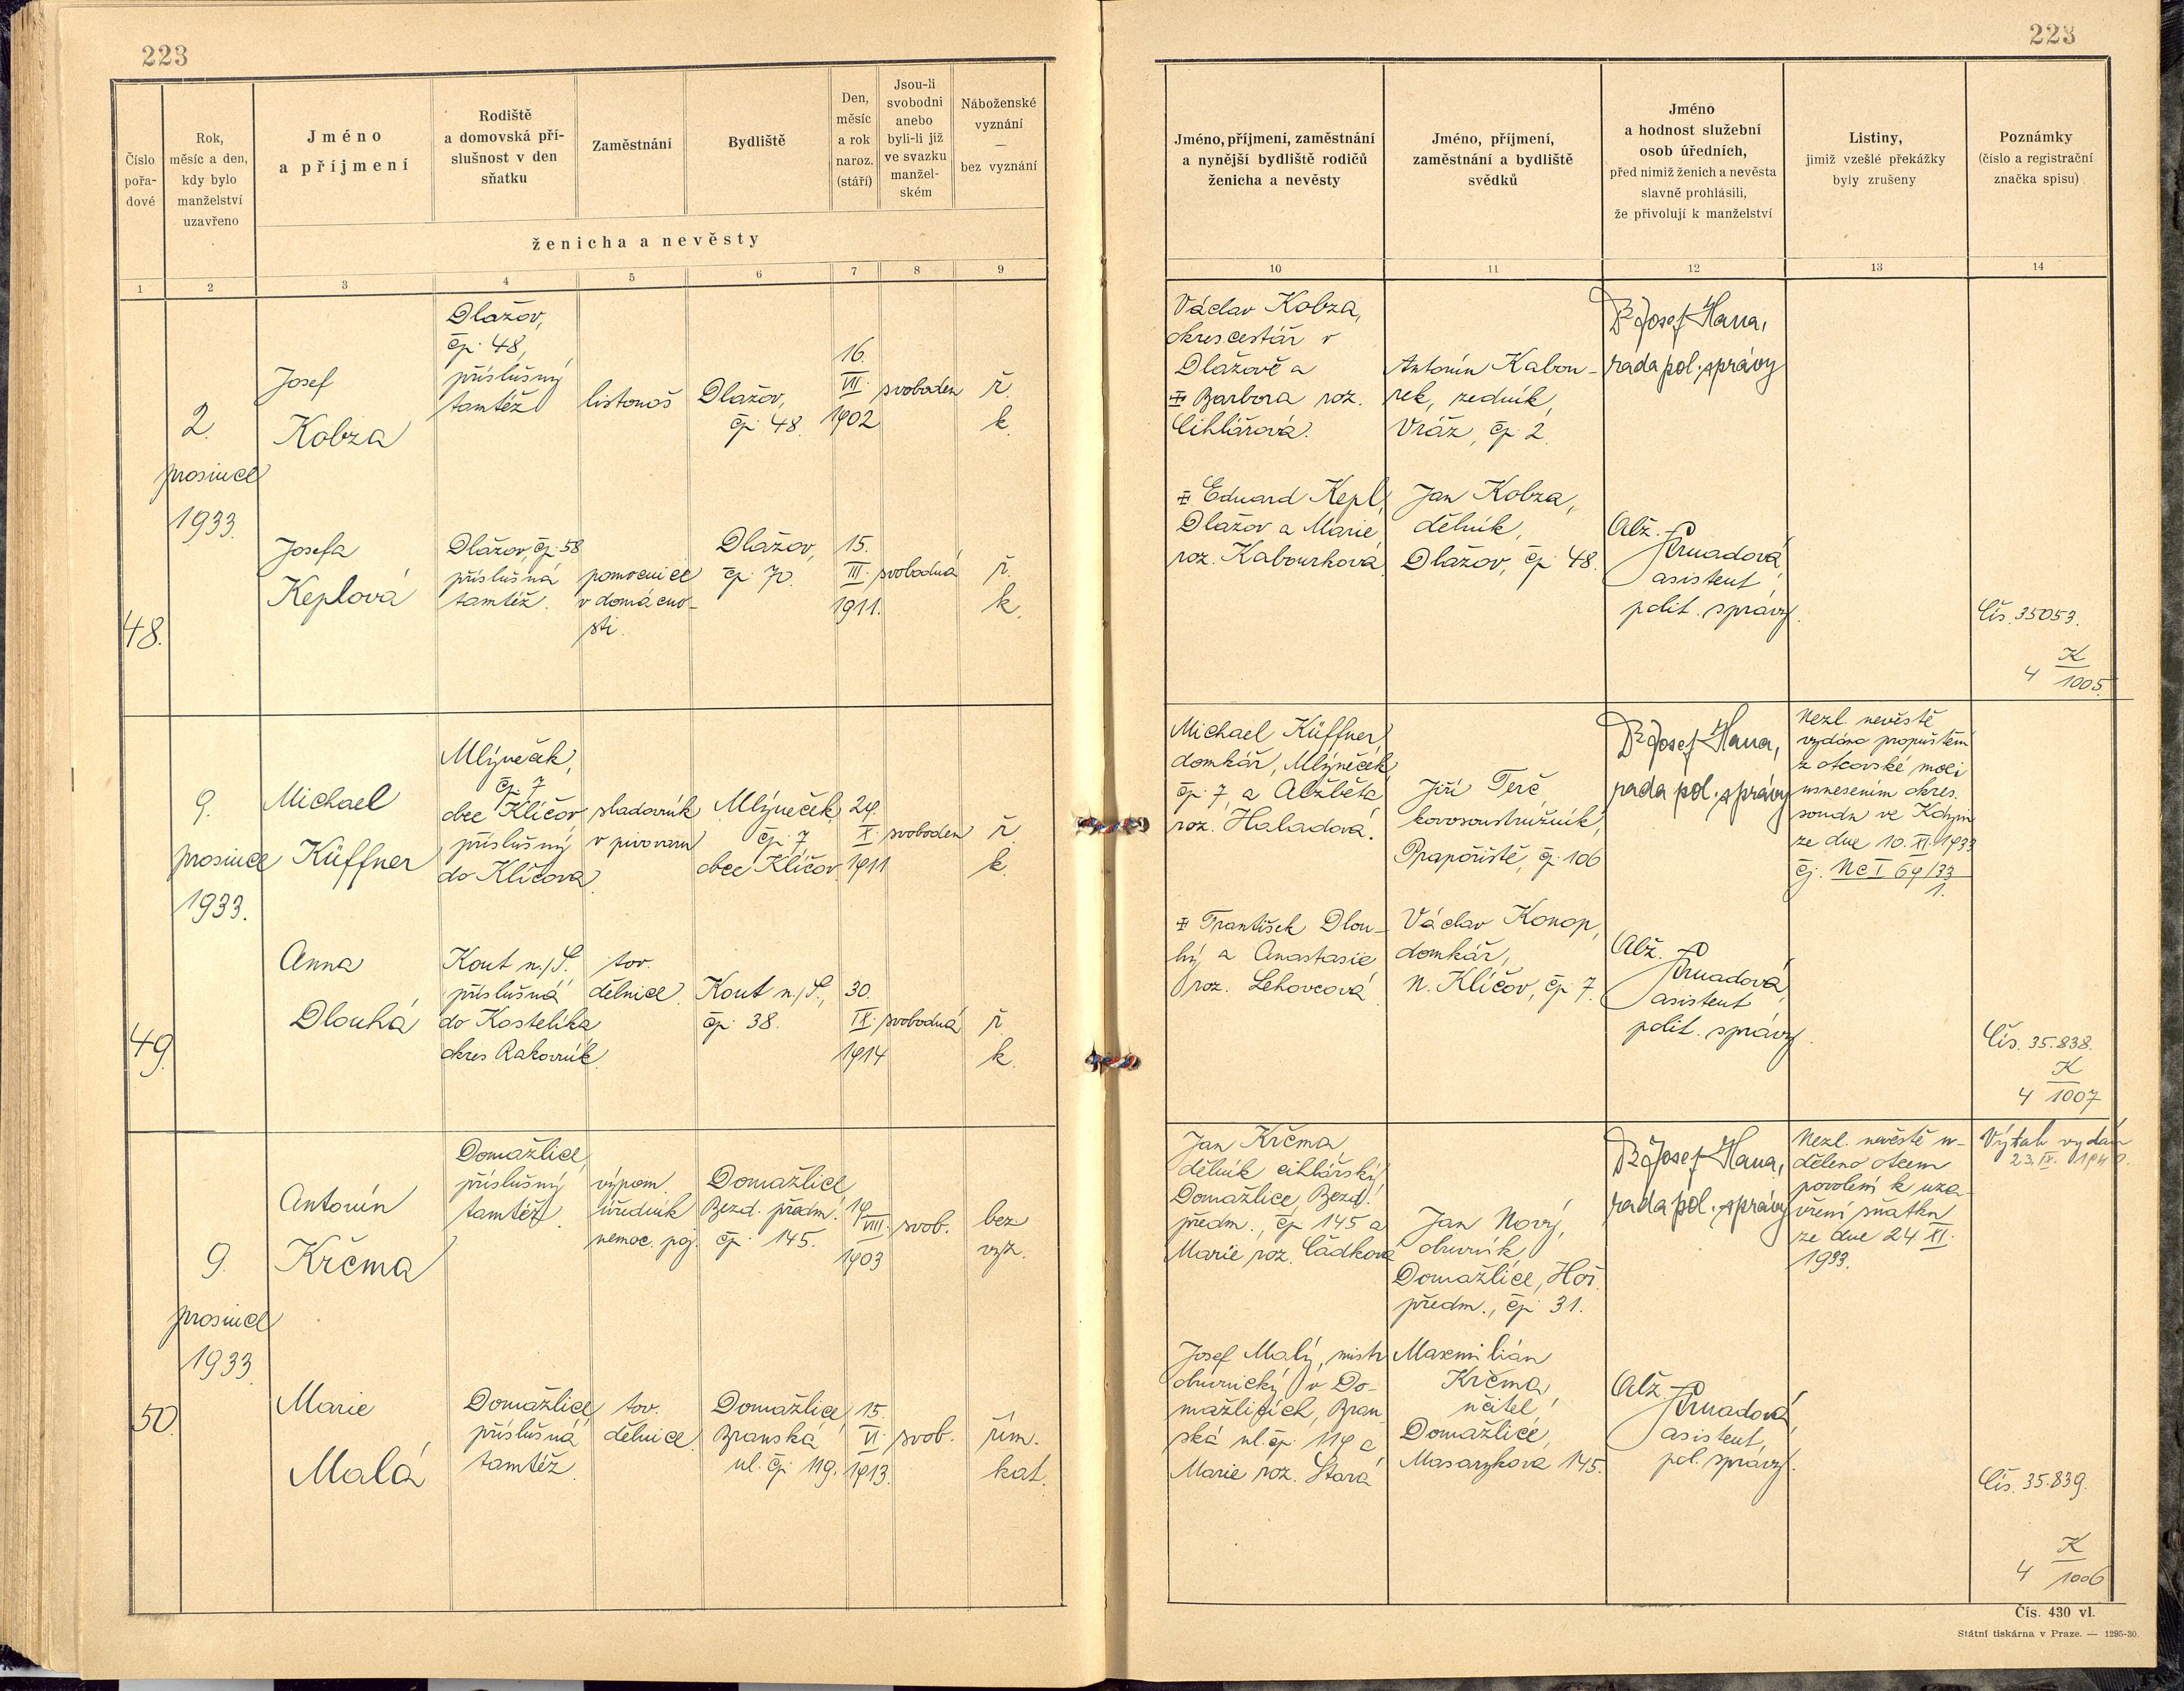 223
223
Číslo
pořa-
dové
Rok,
měsíc a den,
kdy bylo
manželství
uzavřeno
Jméno
a příjmení
Rodiště
a domovská pří-
slušnost v den
sňatku
Zaměstnání
Bydliště
Den,
měsíc
a rok
naroz.
(stáří)
Jsou-li
svobodni
anebo
byli-li již
ve svazku
manžel-
ském
Náboženské
vyznání
—
bez vyznání
ženicha a nevěsty
Jméno, příjmení, zaměstnání
a nynější bydliště rodičů
ženicha a nevěsty
Jméno, příjmení,
zaměstnání a bydliště
svědků
Jméno
a hodnost služební
osob úředních,
před nimiž ženich a nevěsta
slavně prohlásili,
že přivolují k manželství
Listiny,
jimiž vzešlé překážky
byly zrušeny
Poznámky
(číslo a registrační
značka spisu)
1 2 3 4 5 6 7 8 9
10 11 12 13 14
48.
2.
prosince
1933.
Josef
Kobza
Dlažov,
čp. 48,
příslušný
tamtéž
listonoš
Dlažov,
čp. 48.
16.
VII.
1902
svoboden
ř.
k.
Josefa
Keplová
Dlažov, čp. 58
příslušná
tamtéž.
pomocnice
v domácno-
sti.
Dlažov,
čp. 70.
15.
III.
1911.
svobodná
ř.
k.
Václav Kobza,
okres. cestář v
Dlažově a
Barbora roz.
Cihlářová.
Eduard Kepl,
Dlažov a Marie
roz. Kabourková
Antonín Kabou-
rek, zedník,
Vráz, čp. 2.
Jan Kobza,
dělník,
Dlažov, čp. 48.
Dr Josef Hana,
rada pol. správy
Alž.
asistent
polit. správy.
Čís. 35053.
K
4 1005.
49.
9.
prosince
1933.
Michael
Küffner
Mlýneček,
čp. 7
obec Klíčov
příslušný
do Klíčova.
sladovník
v pivovaru
Mlýneček
čp. 7,
obec Klíčov.
29.
X.
1911
svoboden
ř.
k.
Anna
Dlouhá
Kout n./Š.
příslušná
do Kostelíka
okres Rakovník.
tov.
dělnice.
Kout n./Š.,
čp. 38.
30.
IX.
1914
svobodná
ř.
k.
Michael Küffner
domkář, Mlýneček
čp. 7, a Alžběta
roz. Haladová.
František Dlou-
hý a Anastasie
roz. Lehovcová.
Jiří Terč
kovosoustružník,
Prapořiště, čp. 106
Václav Konop,
domkář,
n. Klíčov, čp. 7.
Dr Josef Hana,
rada pol. správy
Alž.
asistent
polit. správy.
Nezl. nevěstě
vydáno propuštění
z otcovské moci
usnesením okres.
soudu ve Kdyni
ze dne 10. XI. 1933
čj. Nc I 69/33
1.
Čís. 35.838.
K
4 1007
50.
9.
prosince
1933.
Antonín
Krčma
Domažlice,
příslušný
tamtéž.
výpom.
úředník
nemoc. poj.
Domažlice
Bezd. předm.
čp. 145.
19.
VIII.
1903
svob.
bez
vyz.
Marie
Malá
Domažlice,
příslušná
tamtéž.
tov.
dělnice.
Domažlice,
Branská
ul. čp. 119.
15.
VI.
1913.
svob.
řím.
kat.
Jan Krčma,
dělník cihlářský,
Domažlice, Bezd.
předm., čp. 145 a
Marie roz. Čádková
Josef Malý, mistr
obuvnický v Do-
mažlicích, Bran-
ská ul. čp. 119 a
Marie roz. Stará
Jan Nový,
obuvník,
Domažlice, Hoř.
předm., čp. 31.
Maxmilián
Krčma,
učitel,
Domažlice,
Masarykova 145.
Dr Josef Hana,
rada pol. správy
Alž.
asistent,
pol. správy.
Nezl. nevěstě u-
děleno otcem
povolení k uza-
vření sňatku
ze dne 24. XI.
1933.
Výtah vydán
23. IX.
Čís. 35.839.
K
4 1006
Čís. 430 vl.
Státní tiskárna v Praze. — 1295-30.